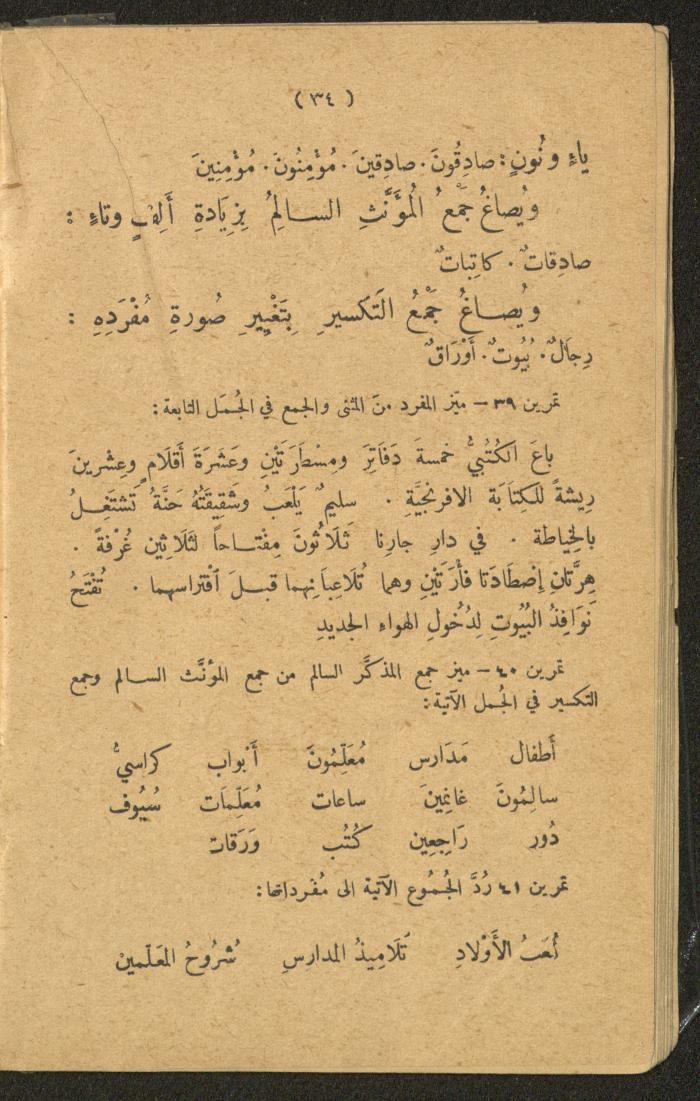 ( ٣٤ )
ياءٍ ونُونٍ: صادِقُونَ. صادِقينَ. مُؤْمِنُونَ. مُؤْمِنِينَ
ويُصاغُ جَمْعُ المُؤَنَّثِ السالِمُ بِزِيَادةِ أَلِفٍ وتاءٍ :
صادِقاتٌ. كاتِباتٌ
ويُصاغُ جَمْعُ التَكسيرِ بِتَغْيِيرِ صُورةِ مُفْرَدِهِ :
رِجَالٌ. بُيُوتٌ. أَوْرَاقٌ
تمرين ٣٩ – ميّز المفرد منَ المثنى والجمع في الجُمَل التابعة:
باعَ الكُتُبيُّ خمسةَ دَفَاتِرَ ومِسْطَرَتَيْنِ وعَشَرَةَ أَقلَامٍ وعِشْرينَ
رِيشةً للكِتَابَة الافرنجيَّةِ . سليمٌ يَلْعَبُ وشَقِيقَتُهُ حَنَّةُ تَشتَغِلُ
بالخِياطة . في دارِ جارِنا ثَلَاثُونَ مِفْتاحاً لثَلَاثِين غُرْفةً .
هِرَّتانِ إِصْطَادَتا فأْرَتَيْنِ وهما تُلَاعِبَانِهما قبلَ ٱفْتراسهما . تُفْتَحُ
نَوَافِذُ البُيوتِ لِدُخُولِ الهواء الجديدِ
تمرين ٤٠ – ميز جمع المذكَّر السالم من جمع المؤنَّث السالم وجمع
التكسير في الجُمل الآتية:
أَطفال مَدَارس مُعَلِّمُونَ أَبواب كراسيُّ
سالِمُونَ غانِمِينَ ساعات مُعَلِّمَات سُيُوف
دُور رَاجِعِين كُتُب وَرَقات
تمرين ٤١ رُدَّ الجُمُوع الآتية الى مُفرداتها:
لُعَبُ الأَوْلادِ تَلَامِيذُ المدارسِ شُرُوحُ المعَلّمين